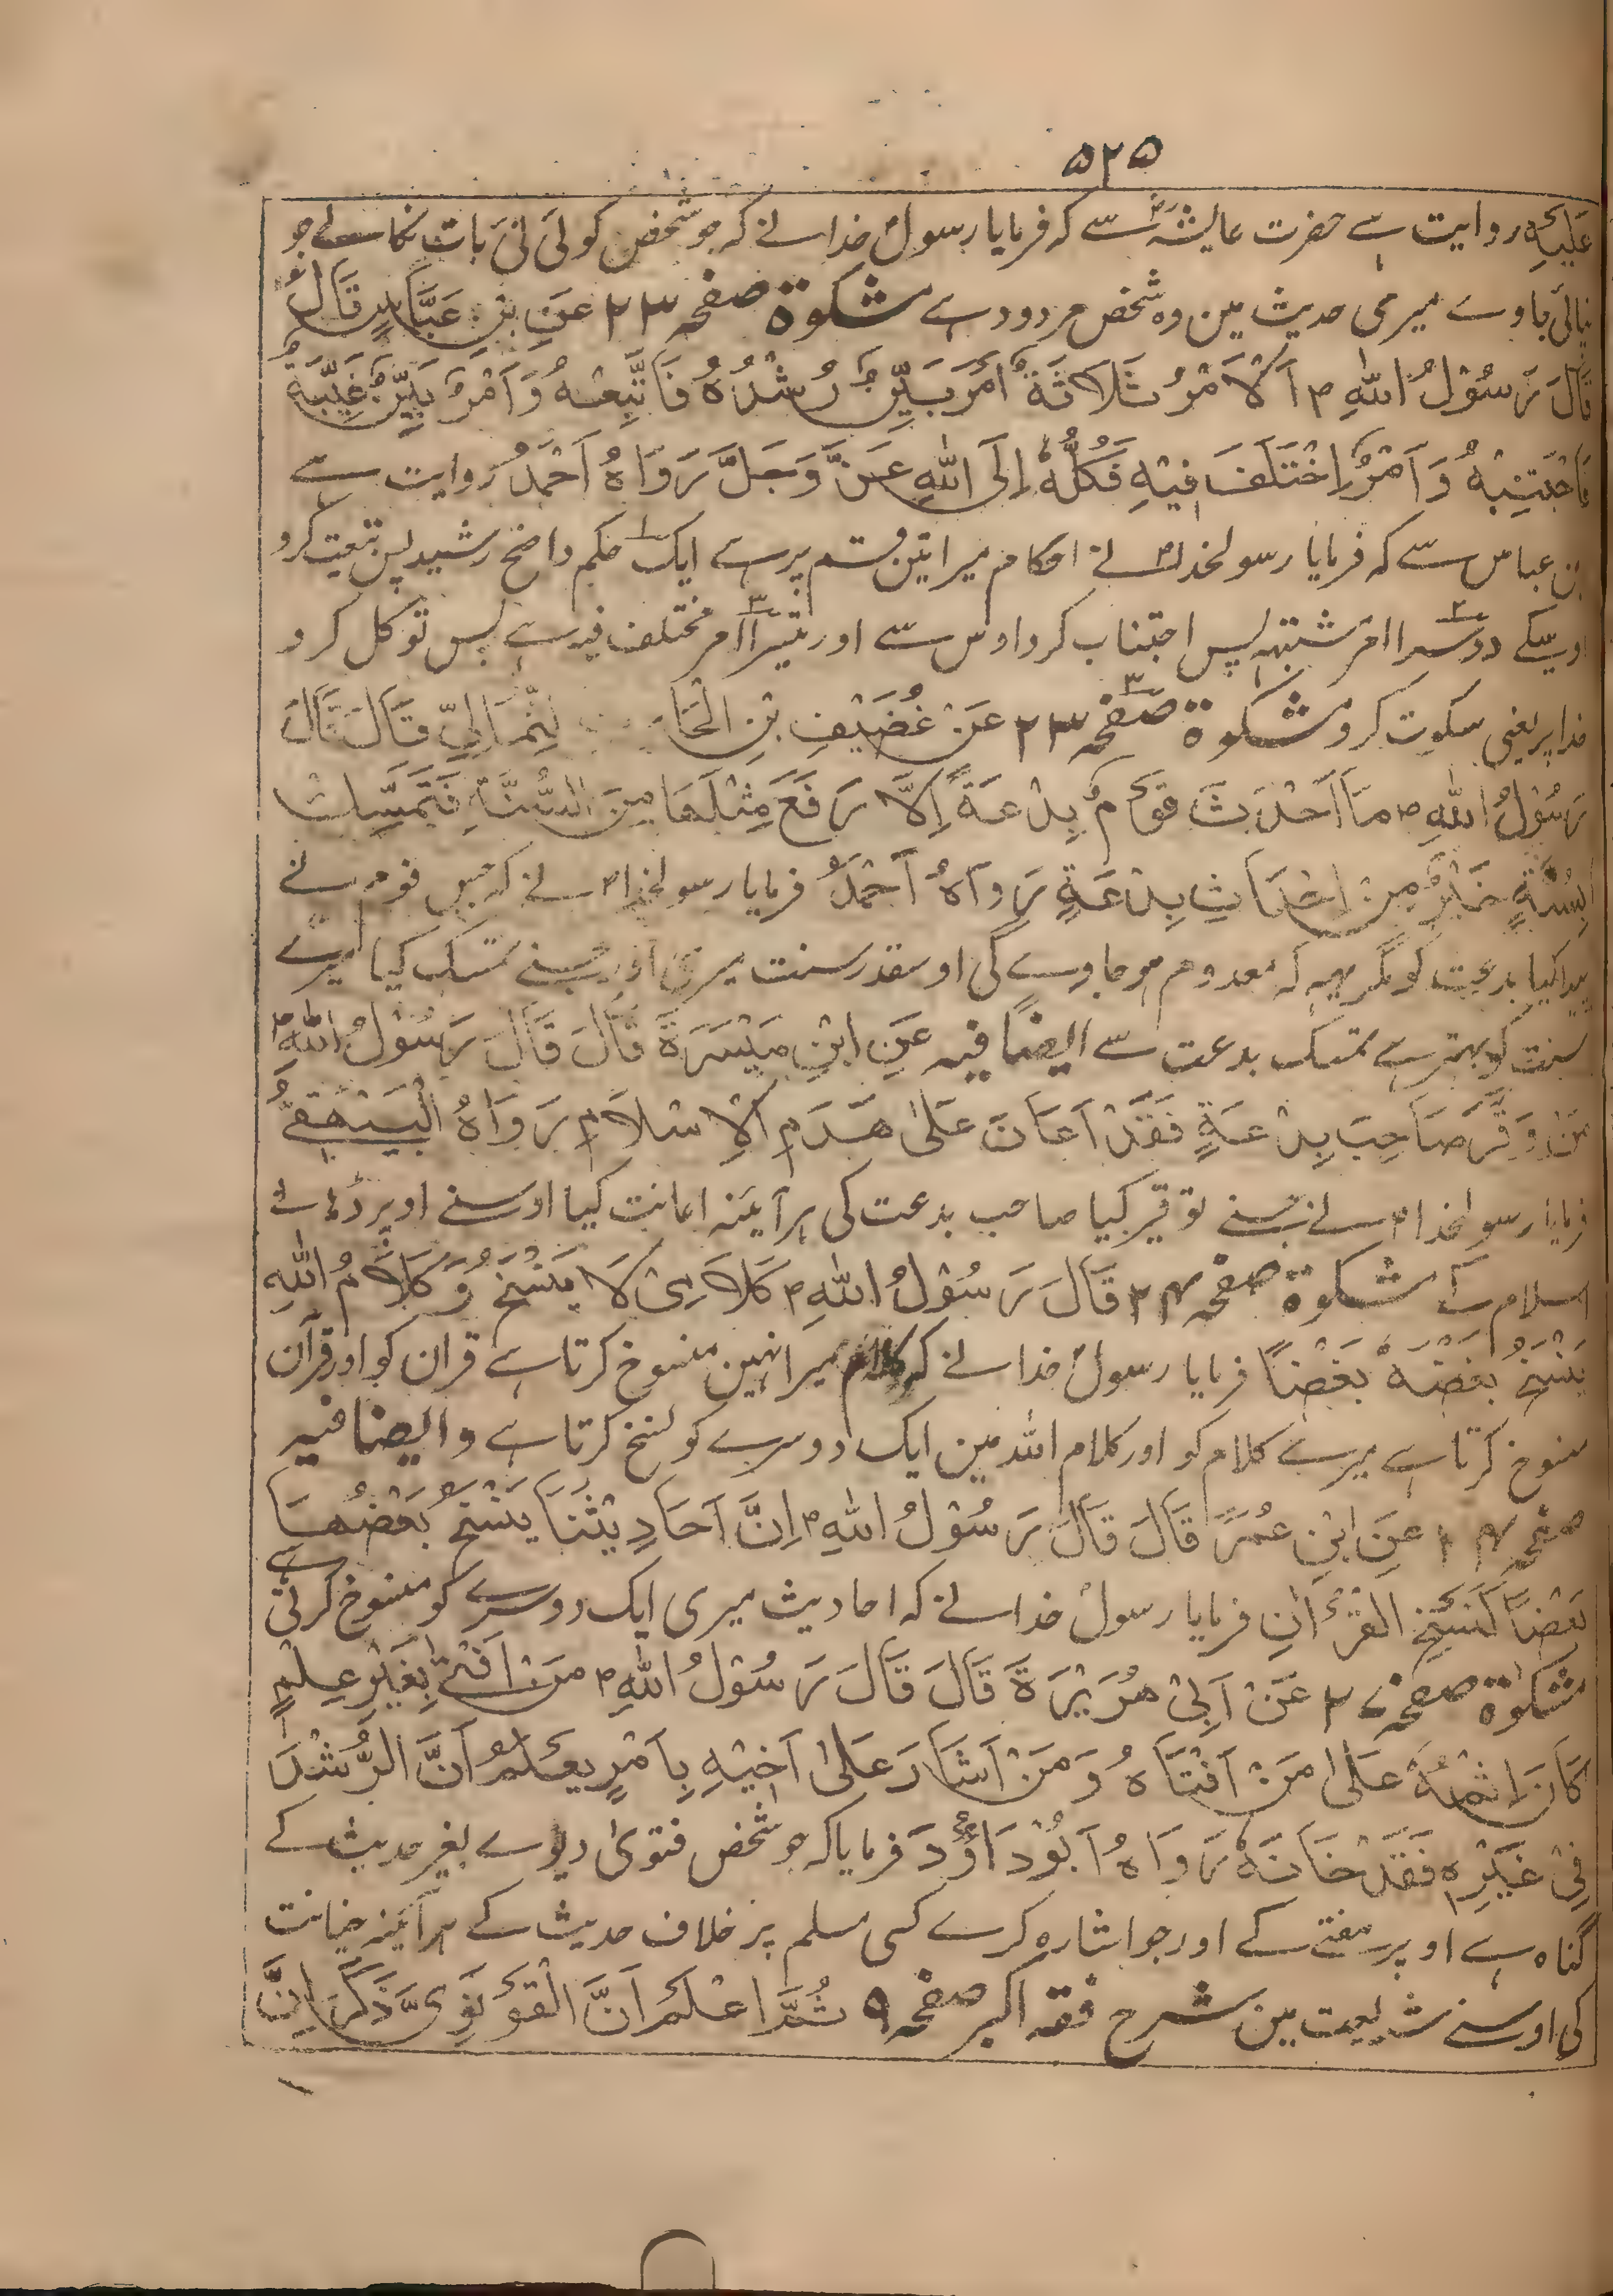 ۵۲۵
علیہ روایت ہے حضرت عایشہؓ سے کہ فرمایا رسولؐ خدا نے کہ جو شخص کوئی نئی بات نکالے جو
نپائی جاوے میری حدیث مین وہ شخص مردود ہے مشکوۃ صفحہ ۲۳ عَنِ بْنِ عَبَّاسٍ قَالَ
قَالَ رَسُوْلُ اللّٰهِ ؐ اَلْاَمْرُ ثَلَاثَةٌ اَمْرٌ بَيِّنٌ رُشْدُهُ فَاتَّبِعْهُ وَاَمْرٌ بَيِّنٌ غَيِّبَةٌ
فَاجْتَنِبْهُ وَاَمْرٌ اِخْتَلَفَ فِيْهِ فَكُلُّهُ اِلَى اللّٰهِ عَزَّ وَجَلَّ رَوَاهُ اَحْمَدُ روایت ہے
بن عباس سے کہ فرمایا رسولخداؐ نے احکام میرا تین قسم پر ہے ایک حکم واضح رشید پس تبعیت کرو
اوسکے دوسرا امر مشتبہ پس اجتناب کرو اوس سے اور تیسرا امر مختلف فیہ ہے پس توکل کرو
خدا پر یعنی سکوت کرو مشکوۃ صفحہ ۲۳ عَنْ غُضَيْفِ بْنِ الْحَا لِثُّمَالِيِّ قَالَ قَالَ
رَسُوْلُ اللّٰهِ ؐ مَا اَحْدَثَ قَوْمٌ بِدْعَةً اِلَّا رَفَعَ مِثْلَهَا مِنَ السُّنَّةِ فَتَمَسُّكٌ
بِسُنَّةٍ خَيْرٌ مِنْ اِحْدَاثِ بِدْعَةٍ رَوَاهُ اَحْمَدُ فرمایا رسولخداؐ نے کہ جس قوم نے
پیدا کیا بدعت کو مگر یہہ کہ معدوم ہو جاوے گی اوسقدر سنت میری اور جسنے تمسک کیا میرے
سنت کو بہتر ہے تمسک بدعت سے ایضًا فیہ عَنِ ابْنِ مَيْسَرَةَ قَالَ قَالَ رَسُوْلُ اللّٰهِ ؐ
مَنْ وَقَّرَ صَاحِبَ بِدْعَةٍ فَقَدْ اَعَانَ عَلٰى هَدَمِ الْاِسْلَامِ رَوَاهُ الْبَيْهَقِيُّ
فرمایا رسولخداؐ نے جسنے توقیر کیا صاحب بدعت کی ہر آیئنہ اعانت کیا اوسنے اوپر ڈہانے
اسلام کے مشکوۃ صفحہ ۲۴ قَالَ رَسُوْلُ اللّٰهِ ؐ كَلَامِىْ لَا يَنْسَخُ وَ كَلَامُ اللّٰهِ
يَنْسَخُ بَعْضُهٗ بَعْضًا فرمایا رسولؐ خدا نے کہ کلام میرا نہین منسوخ کرتا ہے قران کو اور قرآن
منسوخ کرتا ہے میرے کلام کو اور کلام اللہ مین ایک دوسرے کو نسخ کرتا ہے و ایضا فیہ
صفحہ ۲۴ عَنِ ابْنِ عُمَرَ قَالَ قَالَ رَسُوْلُ اللّٰهِ ؐ اِنَّ اَحَادِيْثَنَا يَنْسَخُ بَعْضُهَا
بَعْضًا كَنَسْخِ الْقُرْاٰنِ فرمایا رسولؐ خدا نے کہ احادیث میری ایک دوسرے کو منسوخ کرتی ہے
مشکوۃ صفحہ ۲۷ عَنْ اَبِىْ هُرَيْرَةَ قَالَ قَالَ رَسُوْلُ اللّٰهِ ؐ مَنْ اَفْتٰى بِغَيْرِ عِلْمٍ
كَانَ اِثْمُهٗ عَلٰى مَنْ اَفْتَاهُ وَمَنْ اَشَارَ عَلٰى اَخِيْهِ بِاَمْرٍ يَعْلَمُ اَنَّ الرُّشْدَ
فِىْ غَيْرِهٖ فَقَدْ خَانَهٗ رَوَاهُ اَبُوْدَاوُٗدَ فرمایا کہ جو شخص فتویٰ دیوے بغیر حدیث کے
گناہ ہے اوپر مفتے کے اور جو اشارہ کرے کسی مسلم پر خلاف حدیث کے ہر آیئنہ خیانت
کی اوسنے شریعت مین شرح فقہ اکبر صفحہ ۹ ثُمَّ اعْلَمْ اَنَّ الْقَوْنَوِىَّ ذَكَرَ اَنَّ